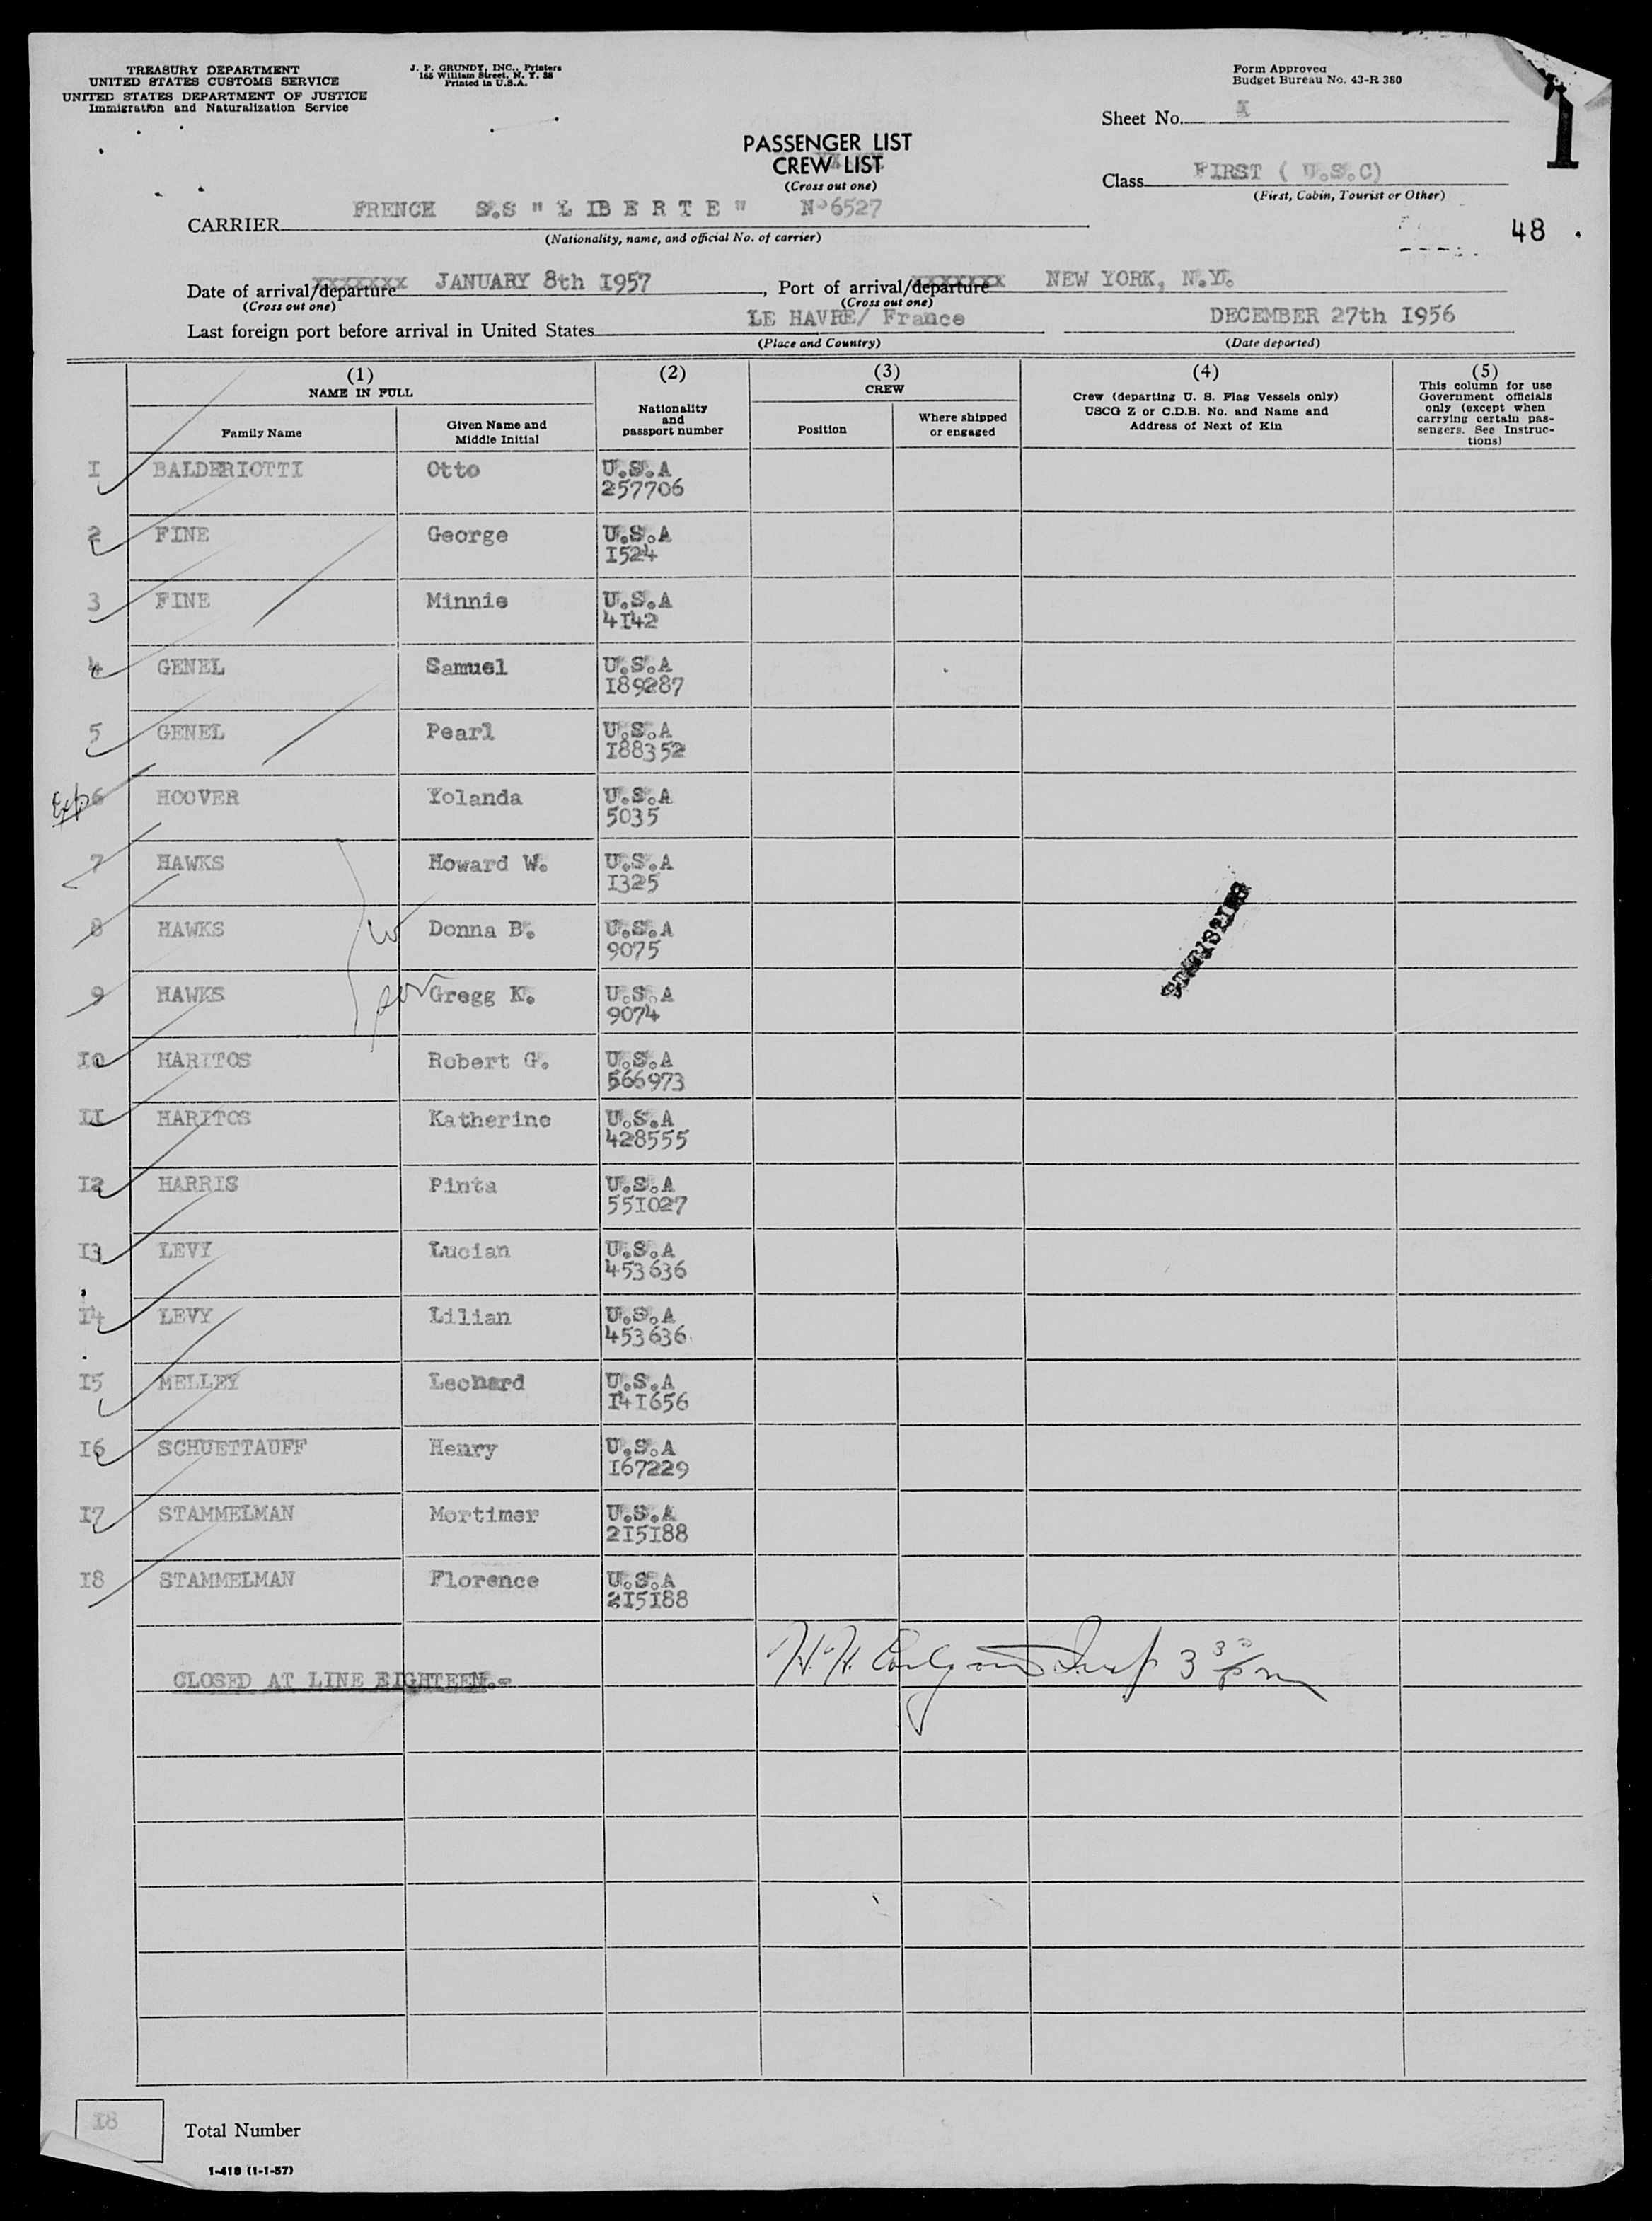 TREASURY DEPARTMENT
UNITED STATES CUSTOMS SERVICE
UNITED STATES DEPARTMENT OF JUSTICE
Immigration and Naturalization Service
J. P. GRUNDY, INC., Printers
165 William Street, N. Y. 38
Printed in U.S.A.
Form Approved
Budget Bureau No. 43-R 380
Sheet No.
1
PASSENGER LIST
CREW LIST
(Cross out one)
Class FIRST ( U.S.C)
(First, Cabin, Tourist or Other)
CARRIER FRENCH S.S " L IB E R T E " Nº6527
(Nationality, name, and official No. of carrier)
48
Date of arrival/departure JANUARY 8th I957, Port of arrival/departure NEW YORK, N.Y.
(Cross out one) (Cross out one)
Last foreign port before arrival in United States LE HAVRE/ France DECEMBER 27th I956
(Place and Country) (Date departed)
(1) NAME IN FULL
Family Name
Given Name and Middle Initial
(2) Nationality and passport number
(3) CREW
Position
Where shipped or engaged
(4) Crew (departing U. S. Flag Vessels only) USCG Z or C.D.B. No. and Name and Address of Next of Kin
(5) This column for use Government officials only (except when carrying certain passengers. See Instructions)
I BALDERIOTTI Otto U.S.A
257706
2 FINE George U.S.A
I524
3 FINE Minnie U.S.A
4I42
4 GENEL Samuel U.S.A
I89287
5 GENEL Pearl U.S.A
I88352
Exp 6 HOOVER Yolanda U.S.A
5035
7 HAWKS Howard W. U.S.A
I325
8 HAWKS Donna B. U.S.A
9075
9 HAWKS Gregg K. U.S.A
9074
I0 HARITOS Robert G. U.S.A
566973
II HARITOS Katherine U.S.A
428555
I2 HARRIS Pinta U.S.A
55I027
I3 LEVY Lucian U.S.A
453636
I4 LEVY Lilian U.S.A
453636
I5 MELLEY Leonard U.S.A
I4I656
I6 SCHUETTAUFF Henry U.S.A
I67229
I7 STAMMELMAN Mortimer U.S.A
2I5I88
I8 STAMMELMAN Florence U.S.A
2I5I88
CLOSED AT LINE EIGHTEEN.-
H. H. Insp 3 30 pm
I8
Total Number
1-418 (1-1-57)